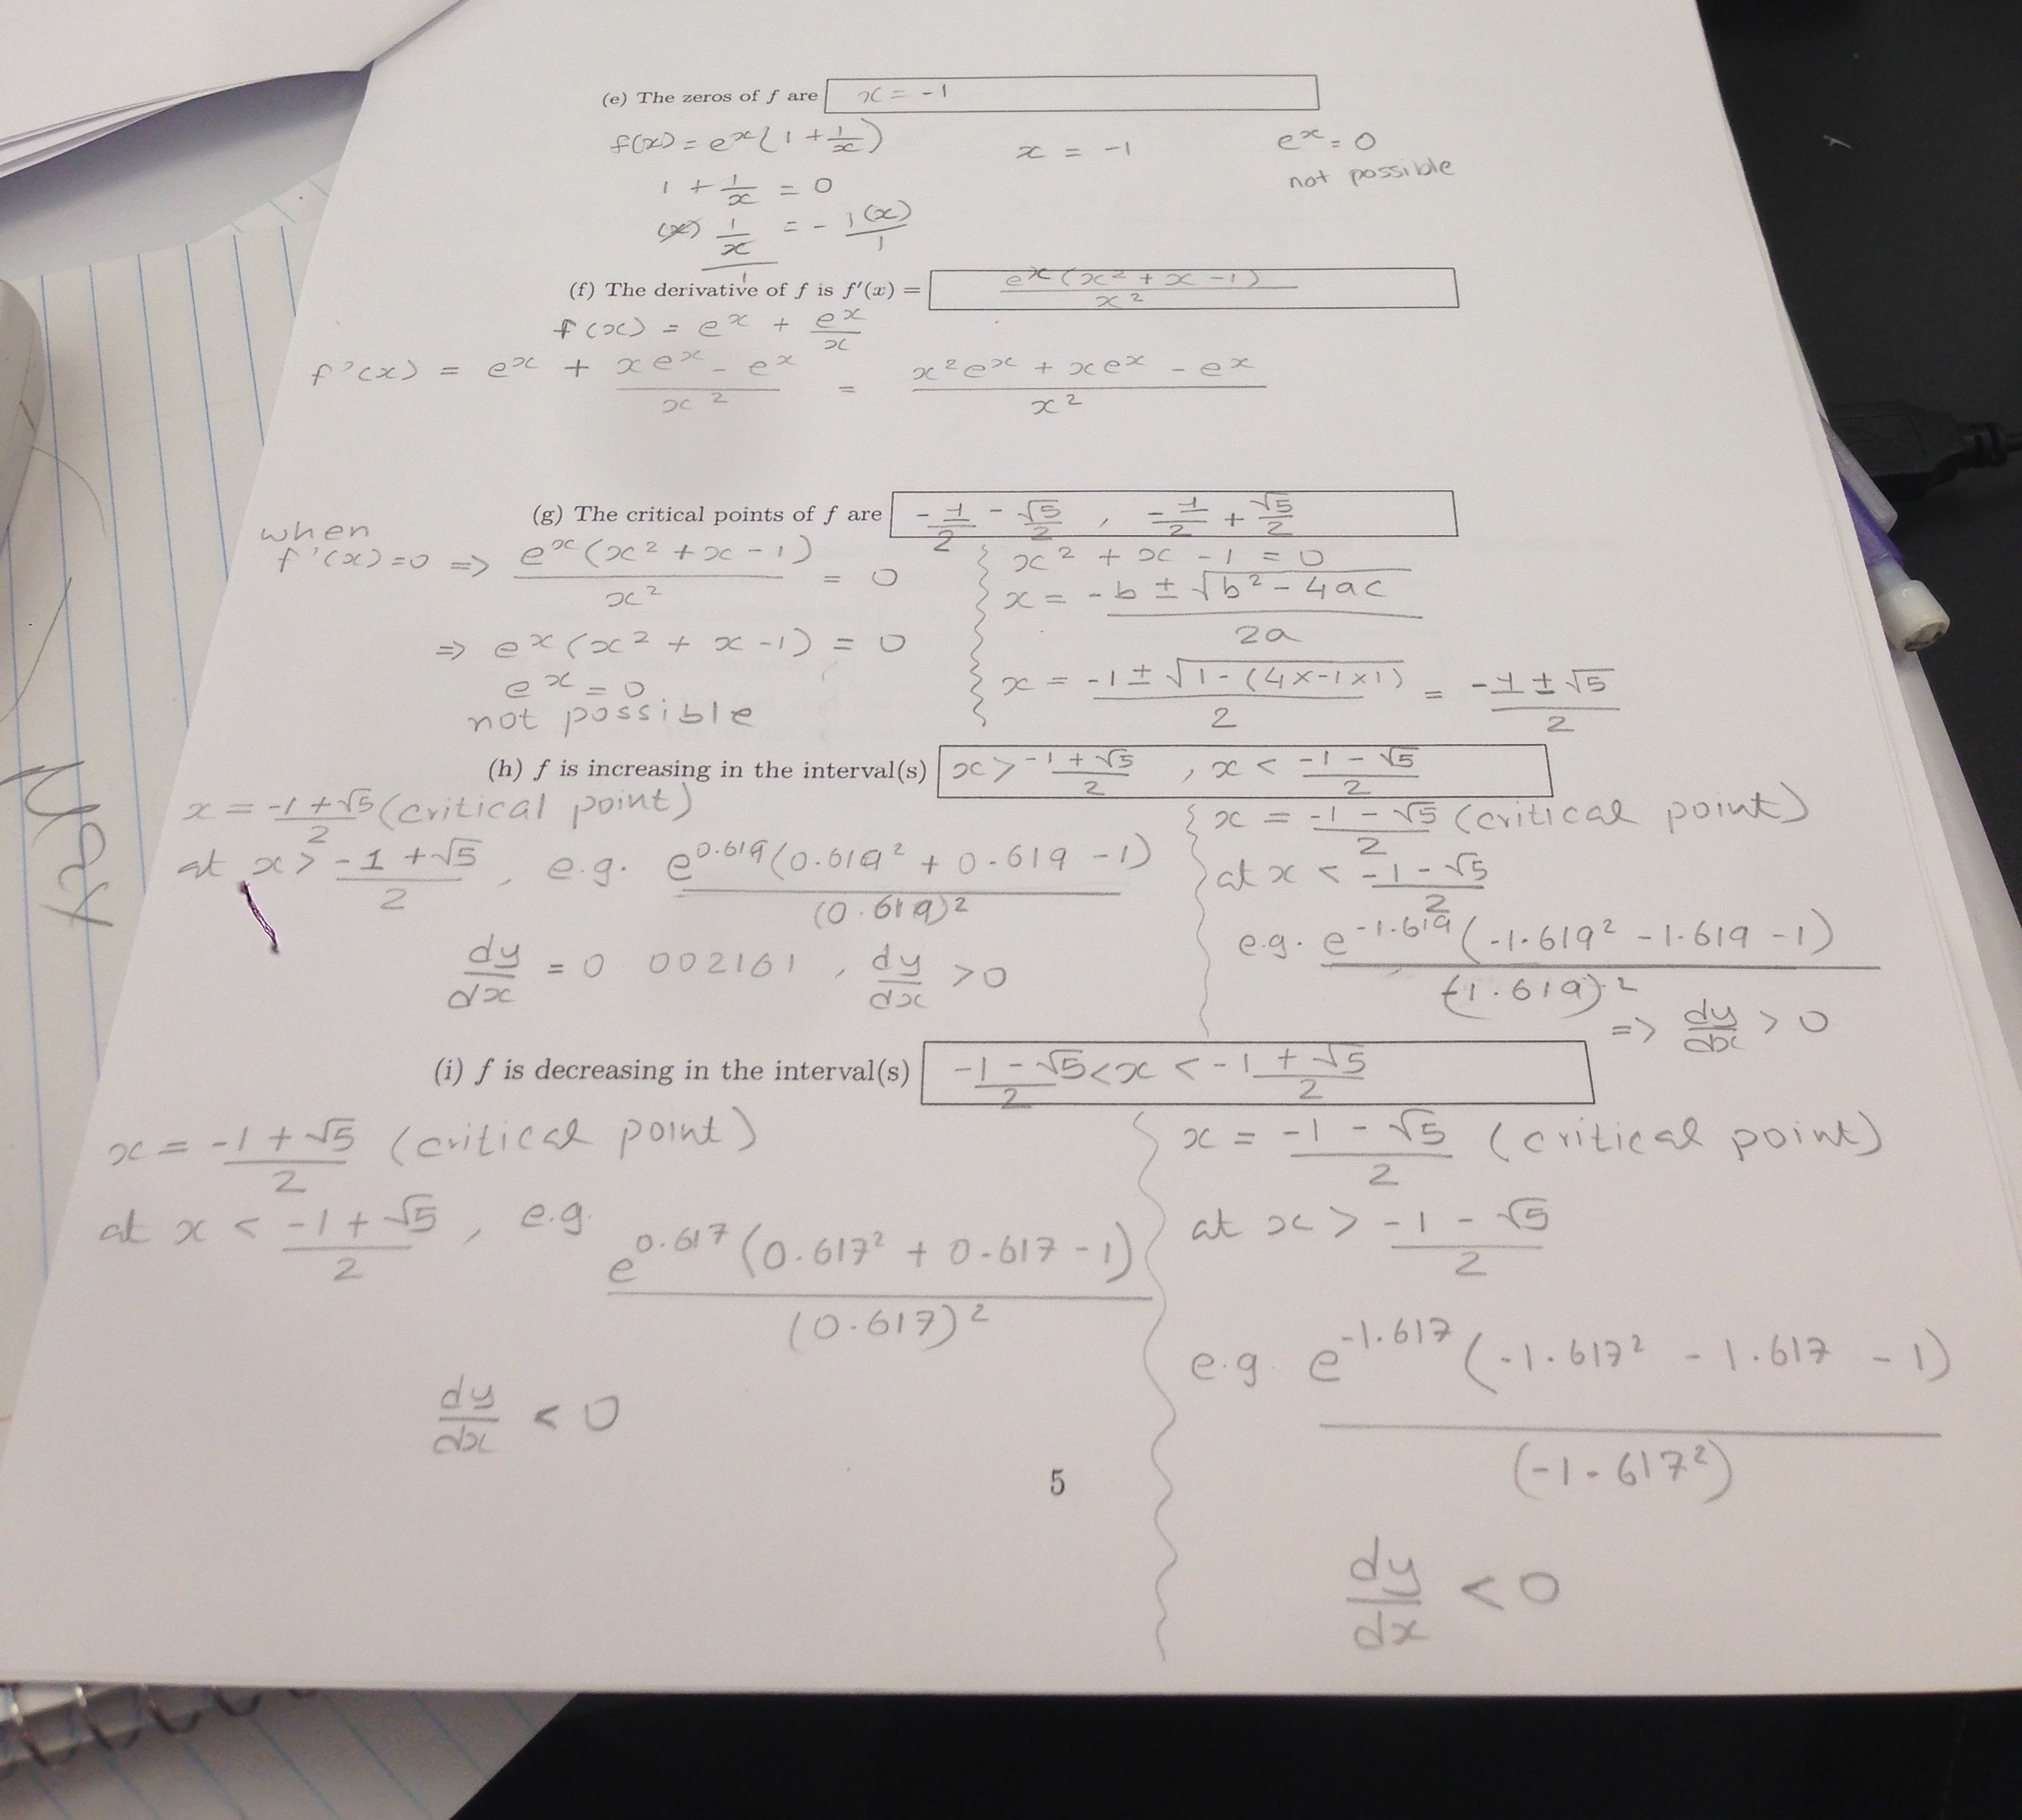 (e) The zeros of f are x = -1
f(x) = e^x (1 + 1/x)
x = -1
e^x = 0
not possible
1 + 1/x = 0
(x) 1/x = - 1(x)/1
(f) The derivative of f is f'(x) = e^x (x² + x - 1) / x²
f(x) = e^x + e^x/x
f'(x) = e^x + (x e^x - e^x)/x² = (x² e^x + x e^x - e^x)/x²
(g) The critical points of f are -1/2 - √5/2 , -1/2 + √5/2
when
f'(x)=0 ⇒ e^x (x² + x - 1) / x² = 0
⇒ e^x (x² + x - 1) = 0
e^x = 0
not possible
x² + x - 1 = 0
x = (-b ± √(b² - 4ac)) / 2a
x = (-1 ± √(1 - (4x-1x1))) / 2 = (-1 ± √5) / 2
(h) f is increasing in the interval(s) x > (-1 + √5)/2 , x < (-1 - √5)/2
x = (-1 + √5)/2 (critical point)
at x > (-1 + √5)/2 , e.g. e^0.619 (0.619² + 0.619 - 1) / (0.619)²
dy/dx = 0 002161 , dy/dx > 0
x = (-1 - √5)/2 (critical point)
at x < (-1 - √5)/2
e.g. e^-1.619 (-1.619² - 1.619 - 1) / (-1.619)²
⇒ dy/dx > 0
(i) f is decreasing in the interval(s) (-1 - √5)/2 < x < (-1 + √5)/2
x = (-1 + √5)/2 (critical point)
at x < (-1 + √5)/2 , e.g. e^0.617 (0.617² + 0.617 - 1) / (0.617)²
dy/dx < 0
x = (-1 - √5)/2 (critical point)
at x > (-1 - √5)/2
e.g e^-1.617 (-1.617² - 1.617 - 1) / (-1.617²)
dy/dx < 0
5